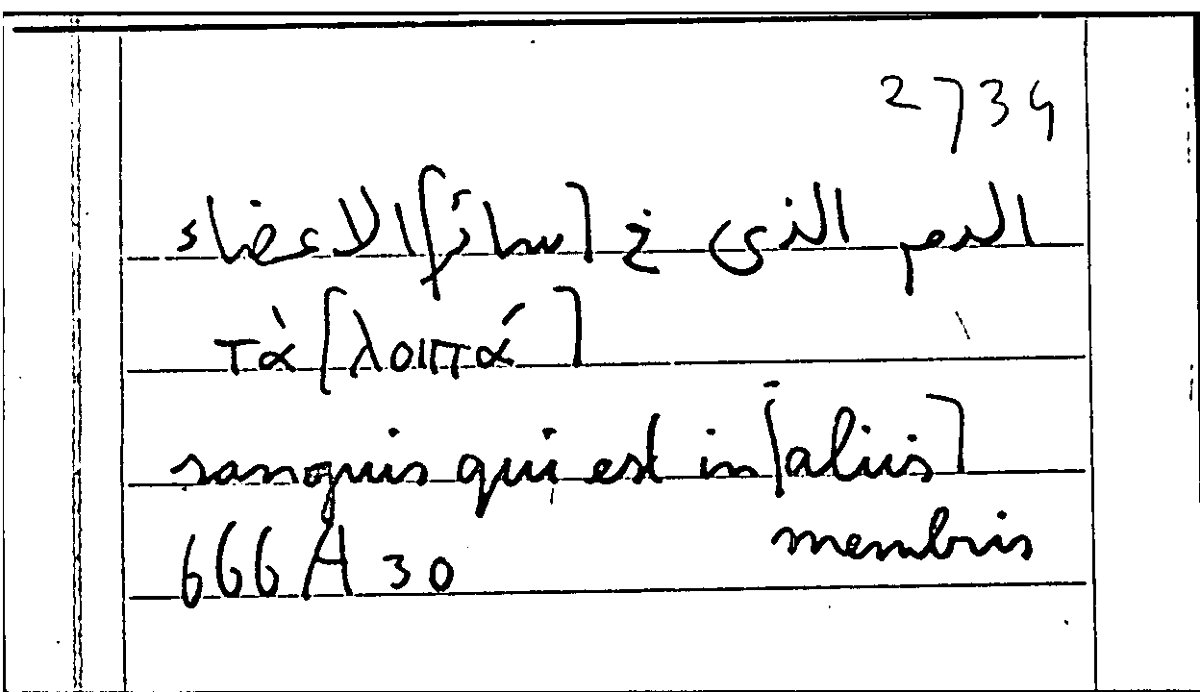 2734
الدم الذى فى [سائر] الاعضاء
τὰ [λοιπά]
sanguis qui est in [aliis]
membris
666A30